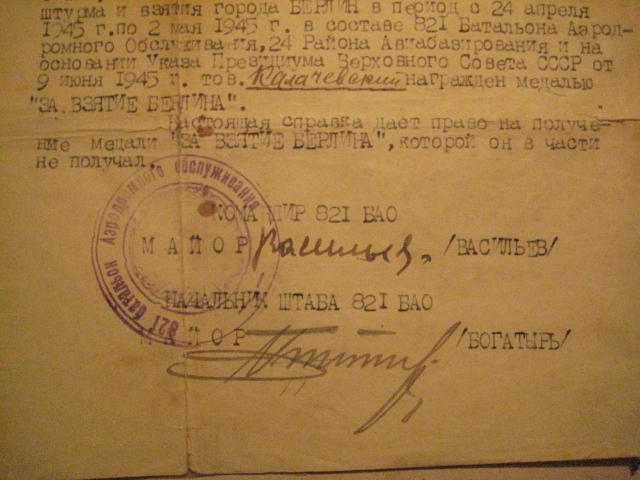 штурма и взятия города БЕРЛИН в период с 24 апреля
1945 г.по 2 мая 1945 г. в составе 821 Батальона Аэрод-
ромного Обслуживания,24 Района Авиабазирования и на
основании Указа Президиума Верховного Совета СССР от
9 июня 1945 г. тов. Калачевский награжден медалью
"ЗА ВЗЯТИЕ БЕРЛИНА".
Настоящая справка дает право на получе-
ние медали "ЗА ВЗЯТИЕ БЕРЛИНА",которой он в части
не получал.
821 батальон Аэродромного обслуживания
КОМАНДИР 821 БАО
МАЙОР Васильев /ВАСИЛЬЕВ/
НАЧАЛЬНИК ШТАБА 821 БАО
МАЙОР /БОГАТЫРЬ/